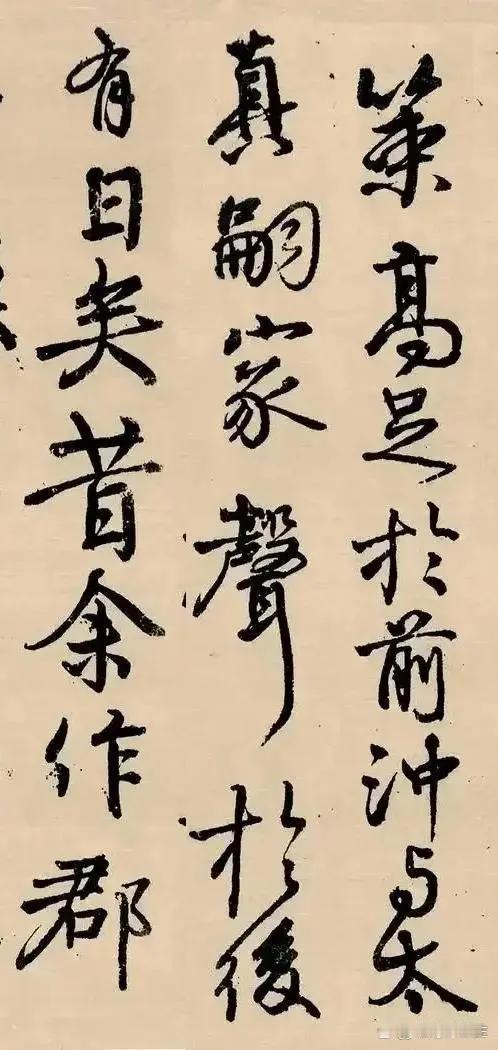 策高足於前沖与太
真嗣家聲於後
有日矣昔余作郡